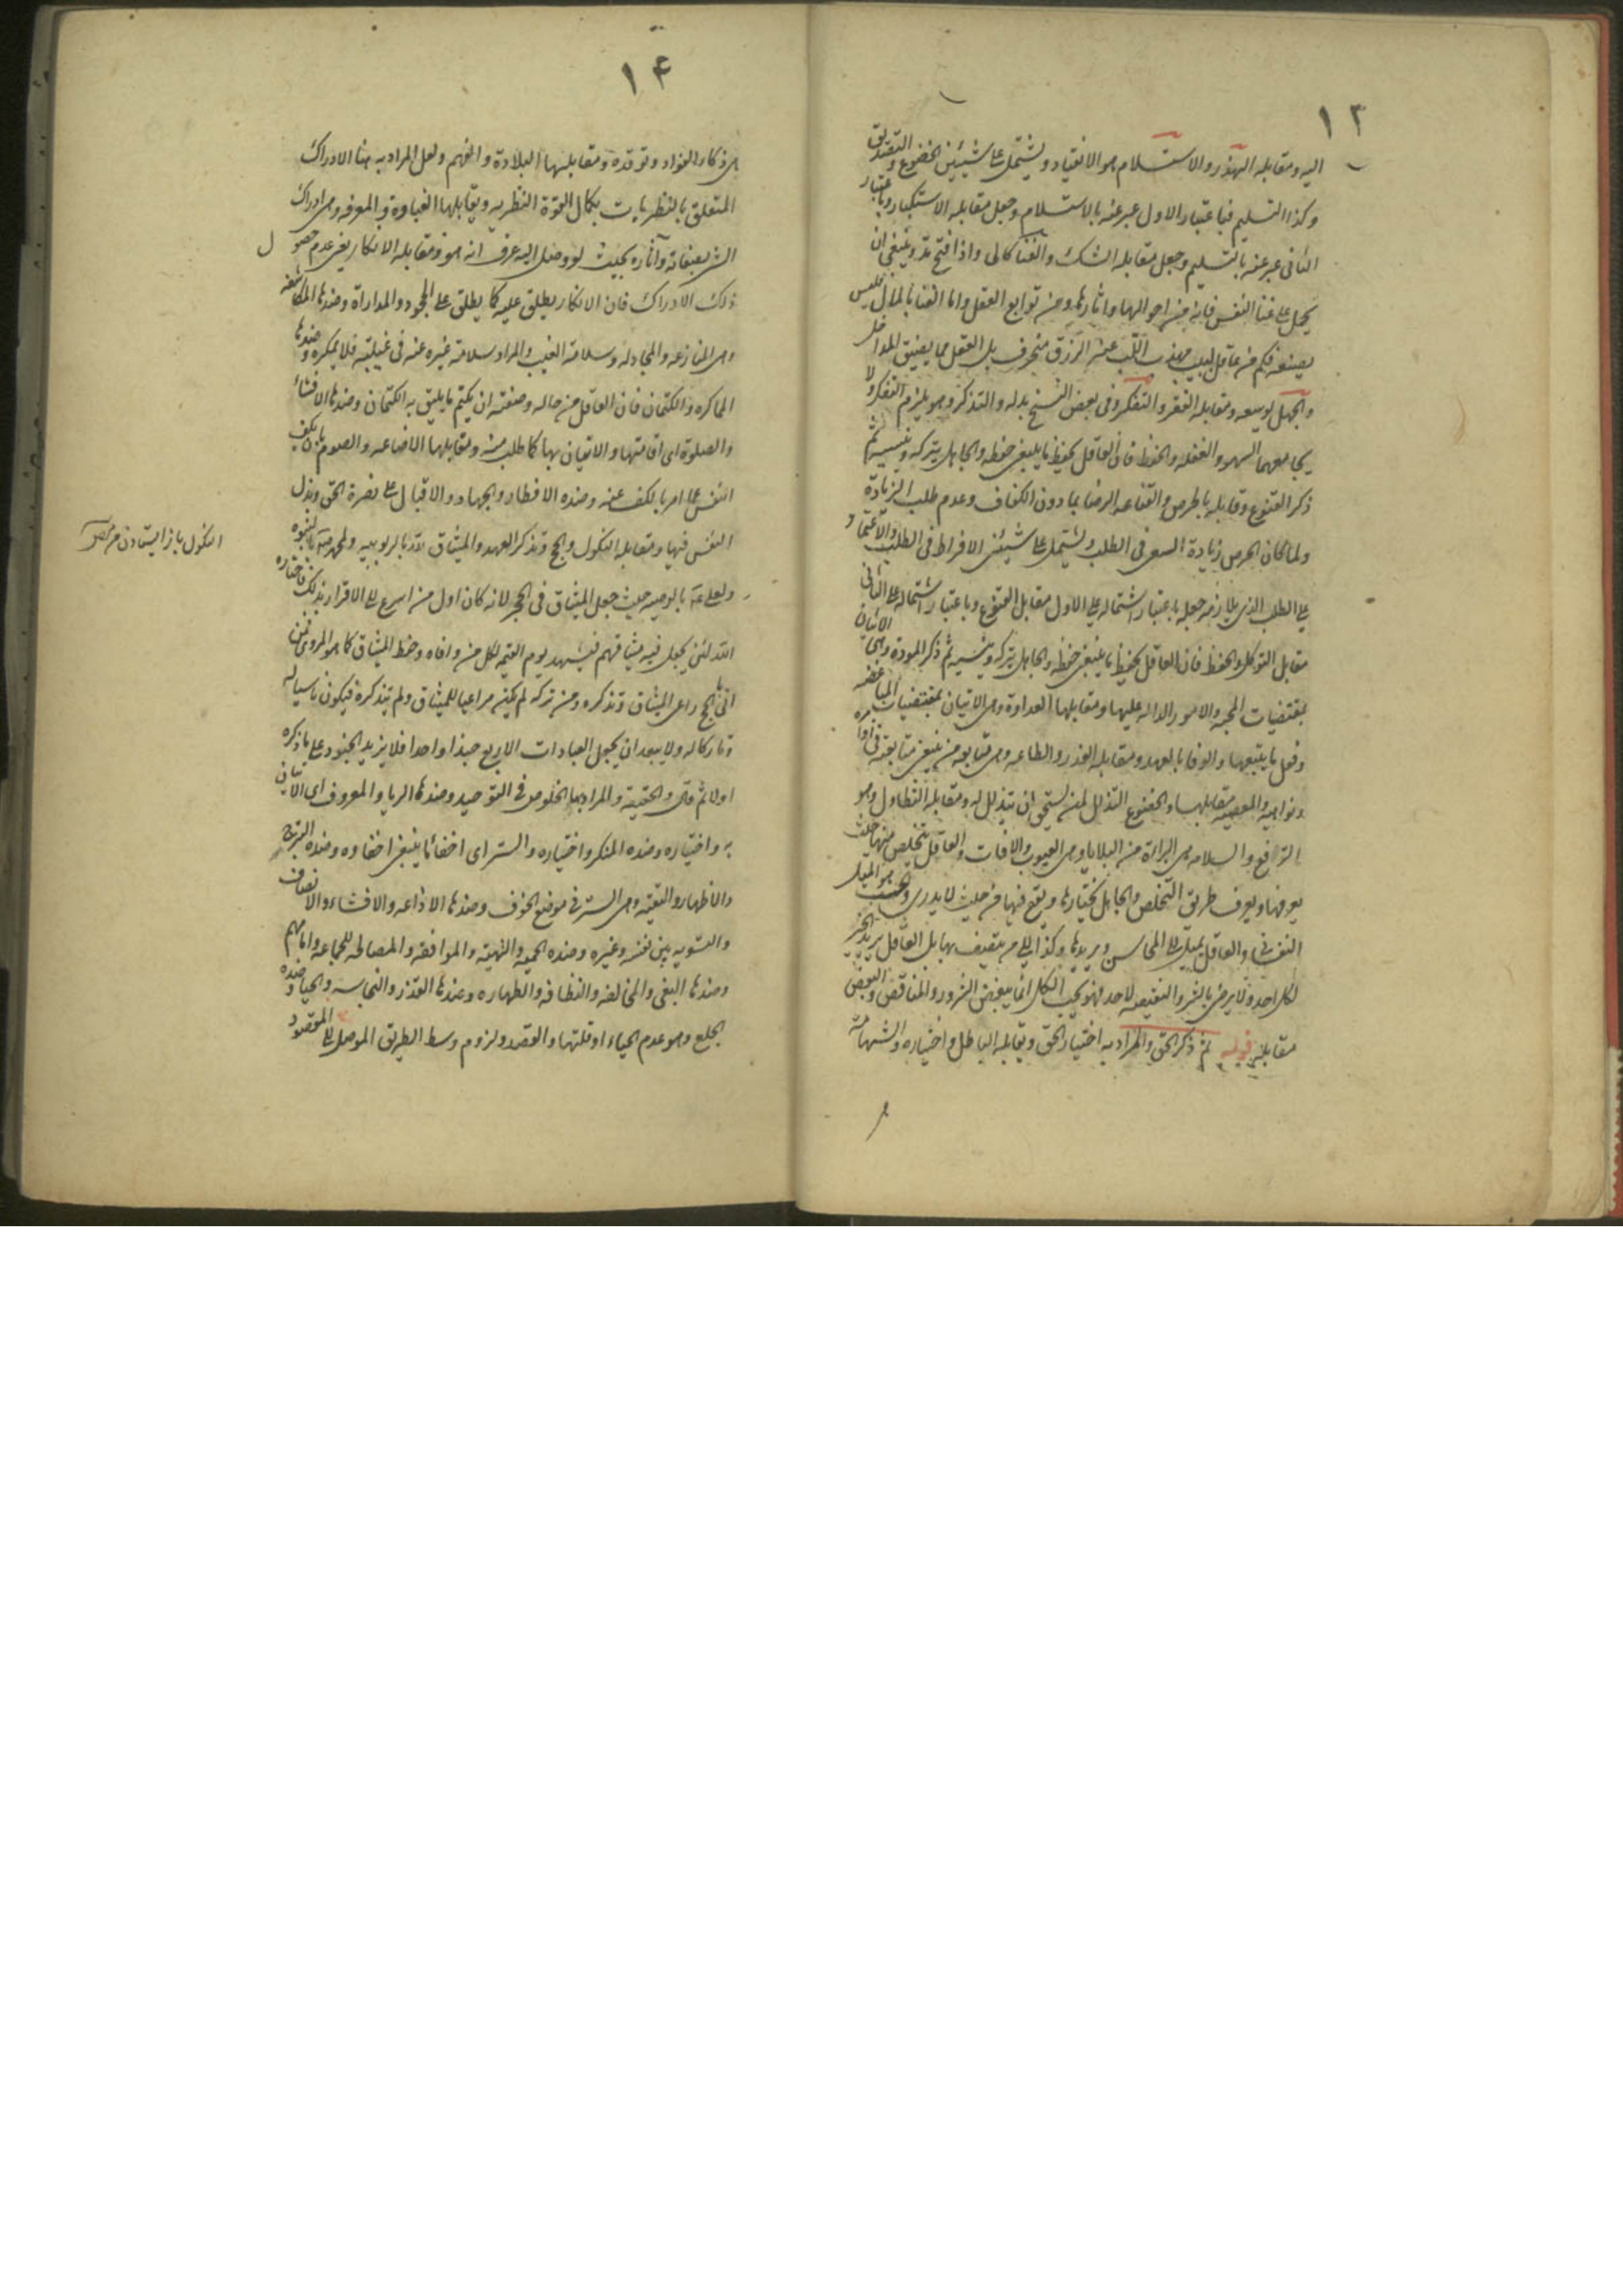 ١٣
اليه ومقابله الهذر والاستسلام هو الانقياد ويشتمل على شيئين الخضوع والتصديق
وكذا التسليم فباعتبار الاول عبر عنه بالاستسلام وجعل مقابله الاستكبار وباعتبار
الثانى عبر عنه بالتسليم وجعل مقابله الشك والغنا كالى واذا فتح مد وينبغى ان
يحمل على غنا النفس فانه من احوالها واثارها ومن توابع العقل واما الغنا بالمال فليس
بصنعه فكم من عاقل لبيب مهذب اللب عنه الرزق منحرف بل العقل مما يضيق المداخل
والجهل يوسعه ومقابله الفقر والتفكر وفى بعض النسخ بدله والتذكر وهو يلزم التفكر ولا
يجامعهما السهو والغفله والحفظ فان العاقل يحفظ ما ينبغى حفظه والجاهل يتركه وينسيه ثم
ذكر القنوع وقابله بالحرص والقناعه الرضا بما دون الكفاف وعدم طلب الزيادة
ولما كان الحرص زيادة السعى فى الطلب ويشتمل على شيئين الافراط فى الطلب والاعتماد
على الطلب الذى يلازمه جعله باعتبار اشتماله على الاول مقابل القنوع وباعتبار اشتماله على الثانى
مقابل التوكل والحفظ فان العاقل يحفظ ما ينبغى حفظه والجاهل يتركه وينسيه ثم ذكر المودة وهى الاتيان
بمقتضيات المحبه والامور الداله عليها ومقابلها العداوة وهى الاتيان بمقتضيات المباغضه
وفعل ما يتبعها والوفا بالعهد ومقابله الغدر والطاعه وهى متابعه من ينبغى متابعته فى اوامره
ونواهيه والمعصيه مقابلها والخضوع التذلل لمن يستحق ان يتذلل له ومقابله التطاول وهو
الترافع والسلامه هى البراءة من البلايا وهى العيوب والافات والعاقل يتخلص منها حيث
يعرفها ويعرف طريق التخلص والجاهل يختارها ويقع فيها من حيث لا يدرى والحب هو الميل
النفسانى والعاقل يميل الى المحاسن ويريدها وكذا الى من يتصف بها بل العاقل يريد الخير
لكل احد ولا يرضى بالشر والنقيصه لاحد فهو يحب الكل انما يبغض الشرور والمناقص والبغض
مقابله قوله ثم ذكر الحق والمراد به اختيار الحق ويقابله الباطل واختياره والشهامة
١٤
هى ذكاء الفؤاد وتوقده ومقابلها البلادة والفهم ولعل المراد به هنا الادراك
المتعلق بالنظريات بكمال القوة النظريه ويقابلها الغباوة والمعرفه وهى ادراك
الشى بصفاته وآثاره بحيث لو وصل اليه عرف انه هو ومقابله الانكار يعنى عدم حصول
ذلك الادراك فان الانكار يطلق عليه كما يطلق على الجحود والمداراة وضدها المكاشفه
وهى المنازعه والمجادله وسلامة الغيب والمراد سلامة غيره عنه فى غيبته فلا يمكره وضدها
المماكره والكتمان فان العاقل من حاله وصفته ان يكتم ما يليق به الكتمان وضدها الافشاء
والصلوة اى اقامتها والاتيان بها كما طلب منه ومقابلها الاضاعه والصوم بان يكف
النفس عما امر بالكف عنه وضده الافطار والجهاد والاقبال على نصرة الحق وبذل
النفس فيها ومقابله النكول والحج وتذكر العهد والميثاق لله بالربوبيه ولمحمد ص بالنبوه
ولعلى ع بالوصيه حيث جعل الميثاق فى الحجر لانه كان اول من اسرع الى الاقرار بذلك فاختاره
الله لئن يجعل فيه ميثاقهم فيشهد يوم القيمه لكل من وافاه وحفظ الميثاق كما هو المروى فمن
اتى بالحج راعى الميثاق وتذكره ومن تركه لم يكن مراعيا للميثاق ولم يتذكره فيكون ناسيا له
وتاركا له ولا يبعد ان يجعل العبادات الاربع جندا واحدا فلا يزيد الجنود على ما ذكره
اولا ثم قال والحقيقة والمراد بها الخلوص فى التوحيد وضدها الريا والمعروف اى الاتيان
به واختياره وضده المنكر واختياره والستر اى اخفاء ما ينبغى اخفاوه وضده التبرج
والاظهار والتقية وهى الستر فى موضع الخوف وضدها الاذاعه والافشاء والانصاف
والتسويه بين نفسه وغيره وضده الحميه والتهيئة والموافقه والمصالحه للجماعه وامامهم
وضدها البغى والمخالفه والنظافه والطهاره وضدها القذر والنجاسه والحيا وضده
الجلع وهو عدم الحياء او قلتها والقصد ولزوم وسط الطريق الموصل الى المقصود
النكول باز ايستادن